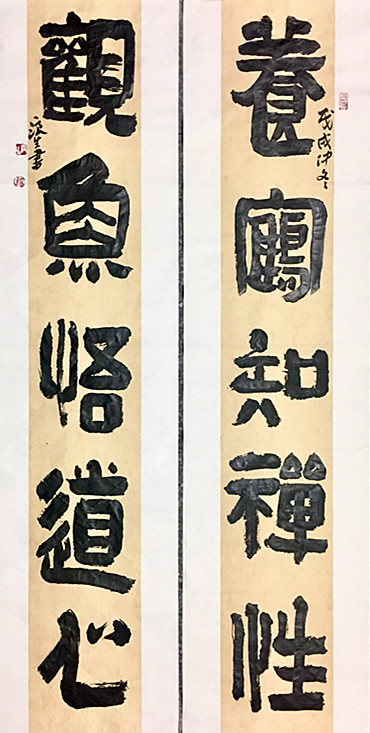 養鶴知禪性
戊戌仲冬
觀魚悟道心